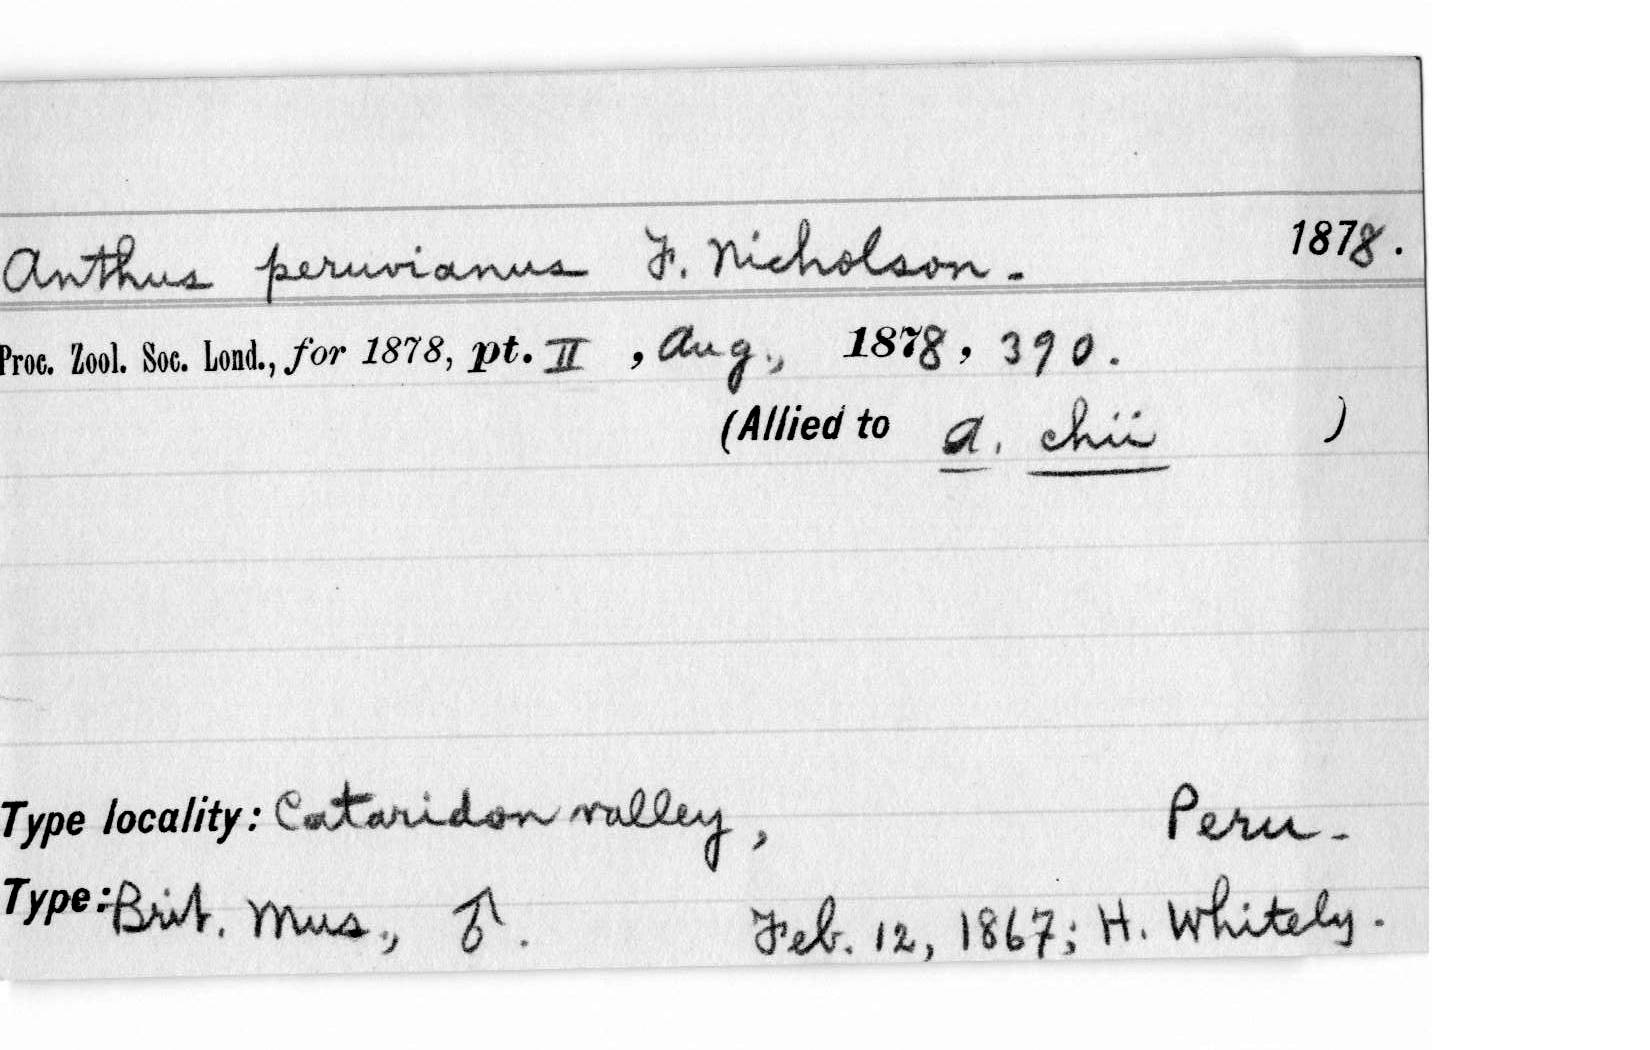 Anthus peruvianus F. Nicholson. 1878.
Proc. Zool. Soc. Lond., for 1878, pt. II , Aug., 1878, 390.
(Allied to A. chii )
Type locality: Cataridon valley, Peru.
Type: Brit. Mus., ♂. Feb. 12, 1867; H. Whitely.